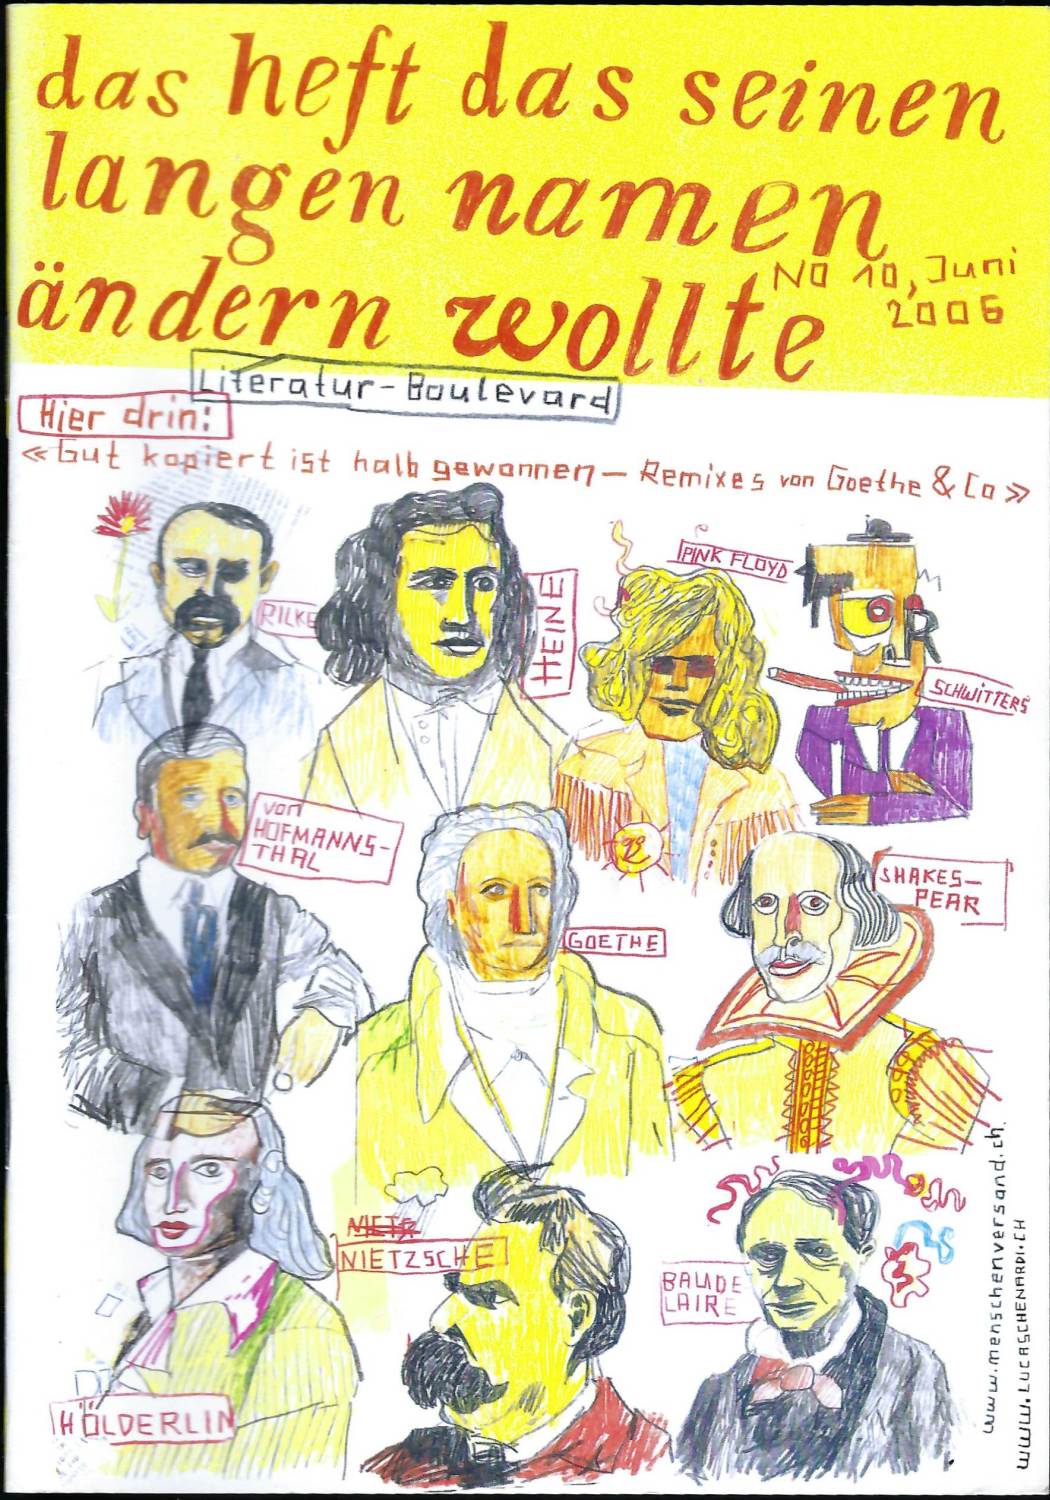 das heft das seinen
langen namen
ändern wollte
No 10, Juni
2006
Literatur-Boulevard
Hier drin:
«Gut kopiert ist halb gewonnen — Remixes von Goethe & Co»
RILKE
HEINE
PINK FLOYD
SCHWITTERS
von
HOFMANNS-
THAL
GOETHE
SHAKES-
PEAR
NIETZSCHE
BAUDE
LAIRE
HÖLDERLIN
www.menschenversand.ch
www.LUCASCHENARDI.CH